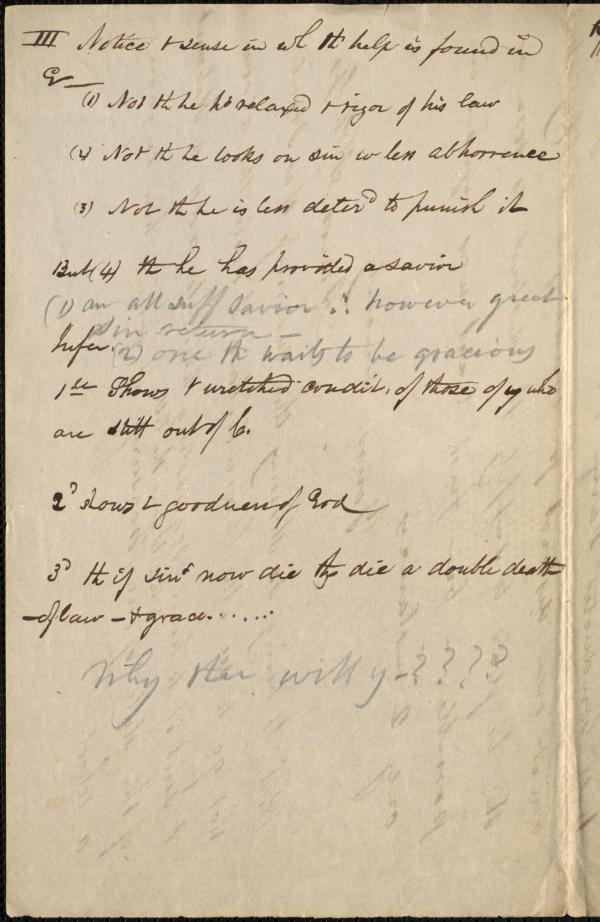 III Notice + sense in wh th help is found in
G—
(1) Not th he hs relaxed + rigor of his law
(2) Not th he looks on sin w less abhorrence
(3) Not th he is less deterd to punish it
But (4) th he has provided a savior
(1) an all suff savior ∴ however great
sin return —
Infer. (2) one th waits to be gracious
1st Shows + wretched condit. of those of y who
are still out of C.
2d shows + goodness of God
3d th if sinrs now die thy die a double death
—of law — + grace......
Why then will y-????